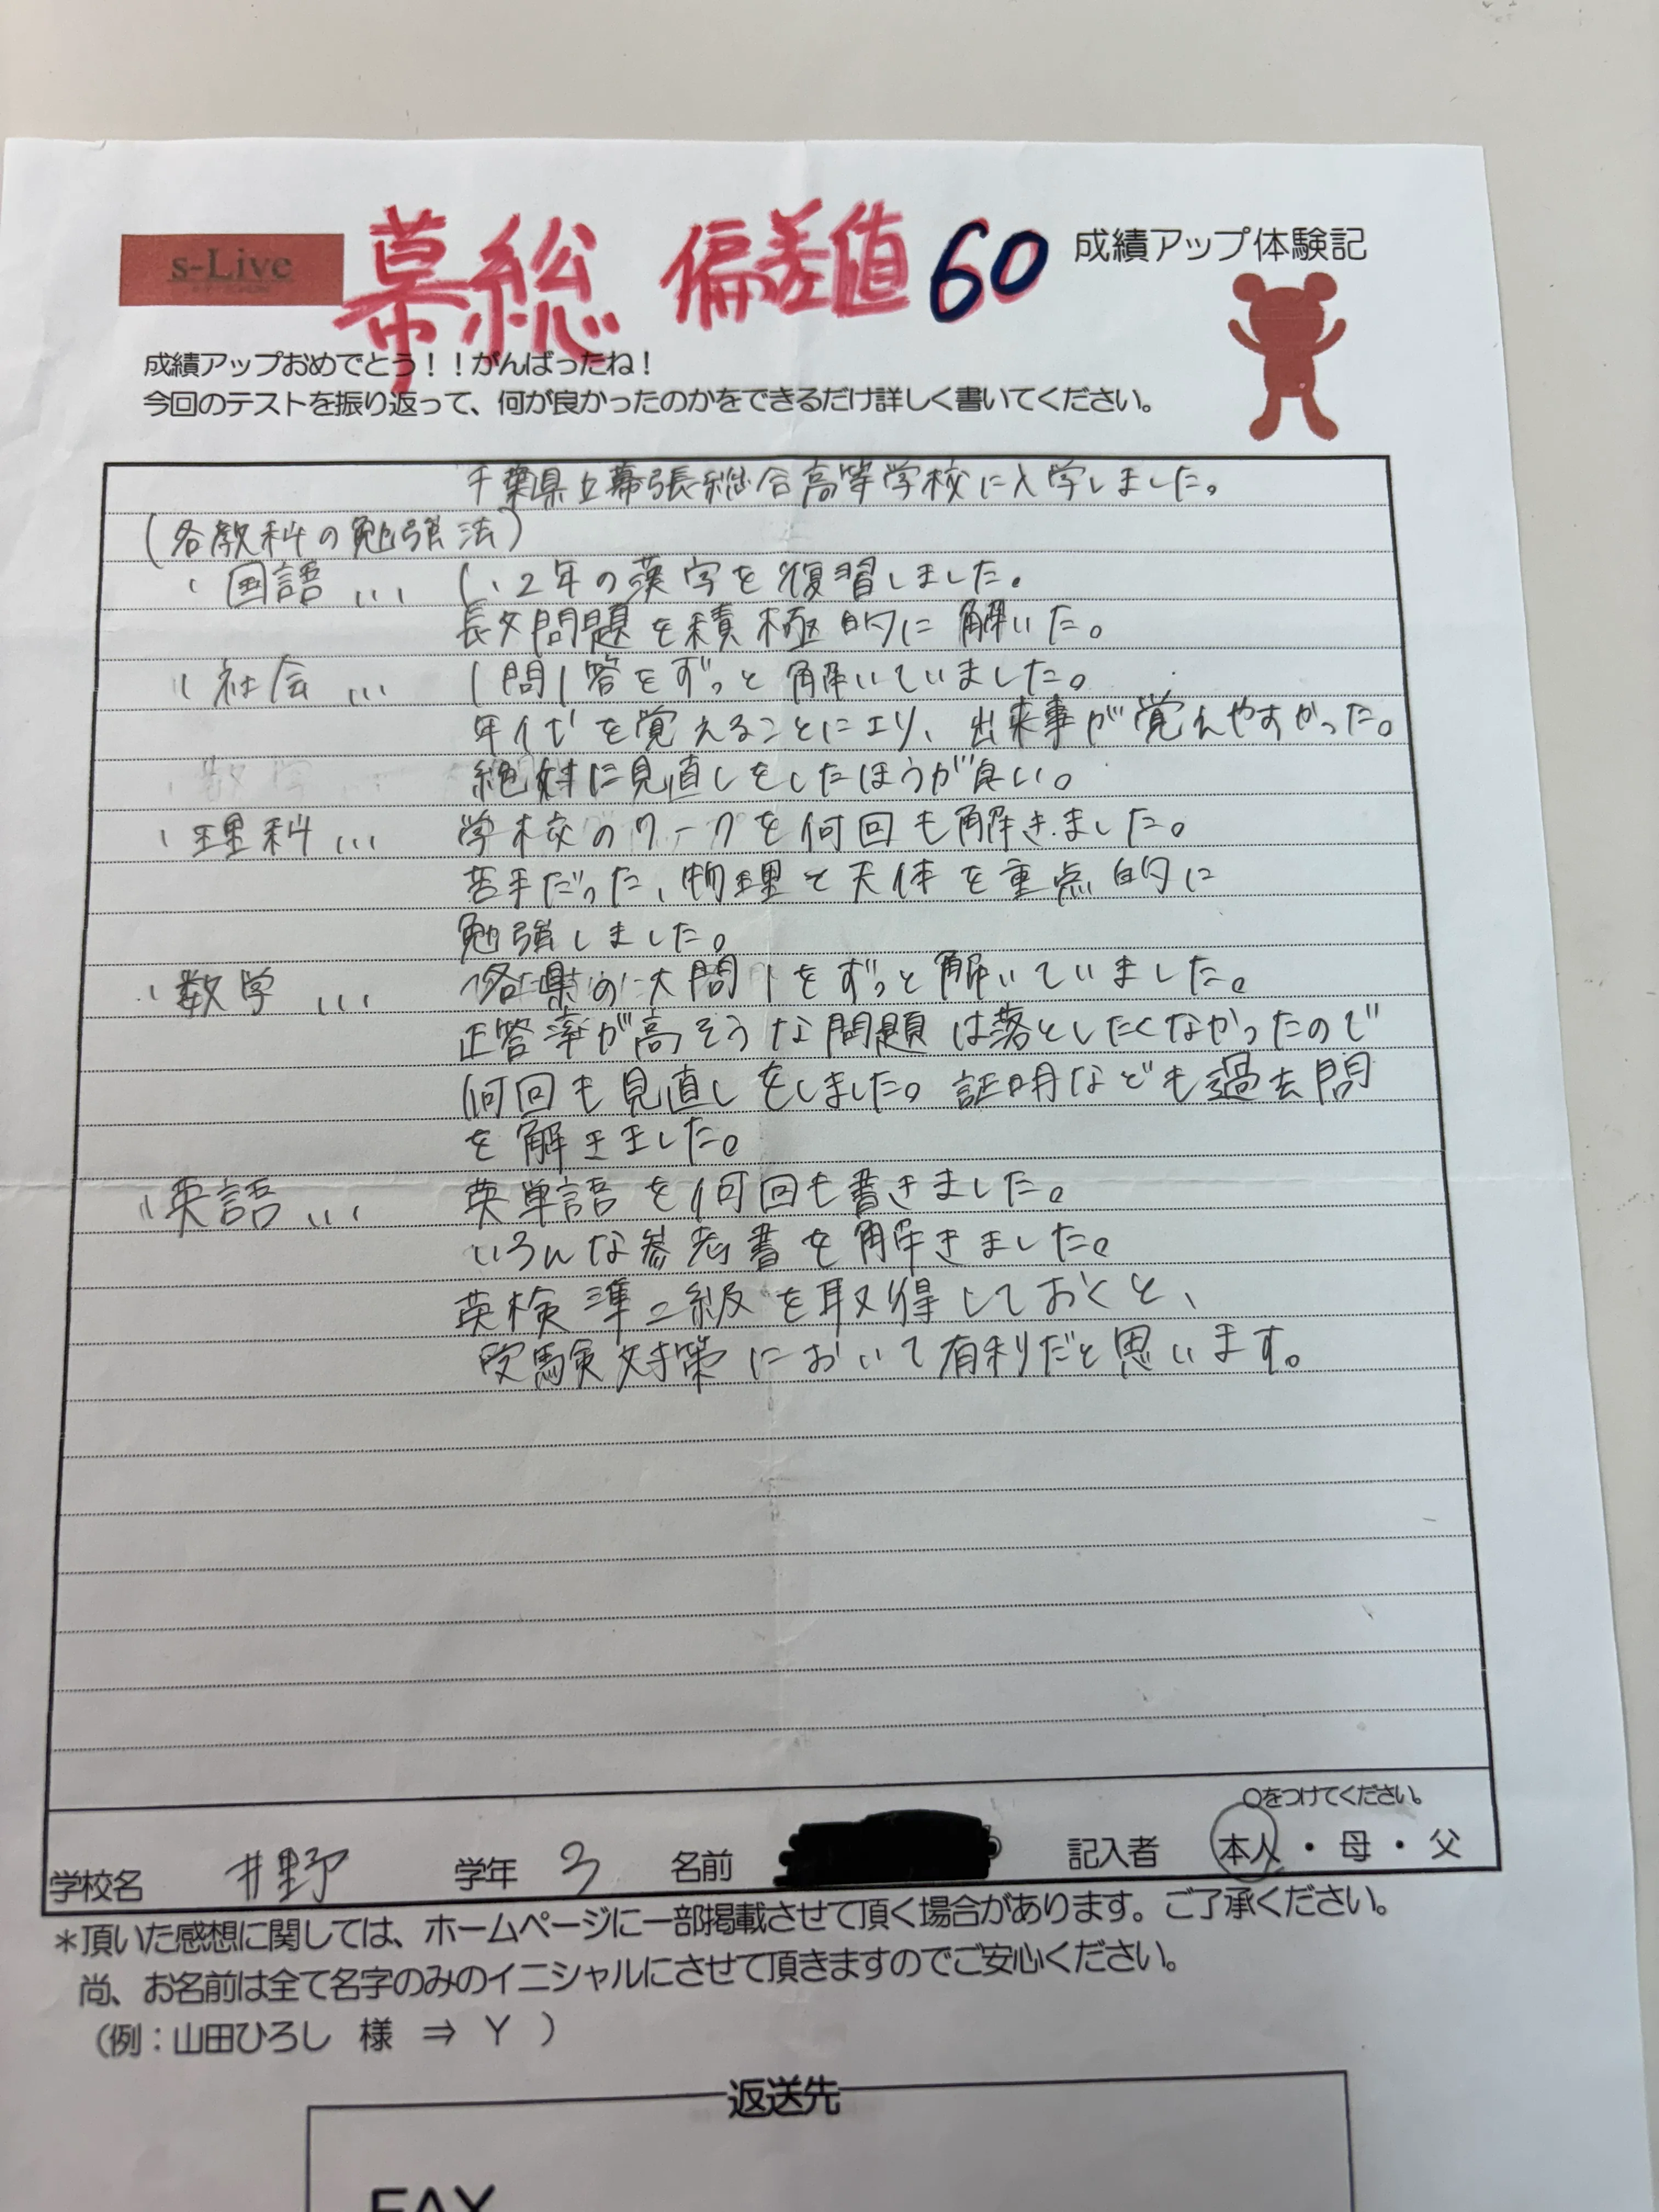 s-Live
幕総 偏差値60
成績アップ体験記
成績アップおめでとう！！がんばったね！
今回のテストを振り返って、何が良かったのかをできるだけ詳しく書いてください。
千葉県立幕張総合高等学校に入学しました。
(各教科の勉強法)
・国語… 1、2年の漢字を復習しました。
長文問題を積極的に解いた。
・社会… 1問1答をずっと解いていました。
年代を覚えることにより、出来事が覚えやすかった。
絶対に見直しをしたほうが良い。
・理科… 学校のワークを何回も解きました。
苦手だった、物理と天体を重点的に
勉強しました。
・数学… 各県の大問1をずっと解いていました。
正答率が高そうな問題は落としたくなかったので
何回も見直しをしました。証明なども過去問
を解きました。
・英語… 英単語を何回も書きました。
いろんな参考書を解きました。
英検準二級を取得しておくと、
受験対策において有利だと思います。
○をつけてください。
学校名 井野 学年 3 名前 記入者 本人・母・父
＊頂いた感想に関しては、ホームページに一部掲載させて頂く場合があります。ご了承ください。
尚、お名前は全て名字のみのイニシャルにさせて頂きますのでご安心ください。
（例：山田ひろし 様 ⇒ Y ）
返送先
FAX